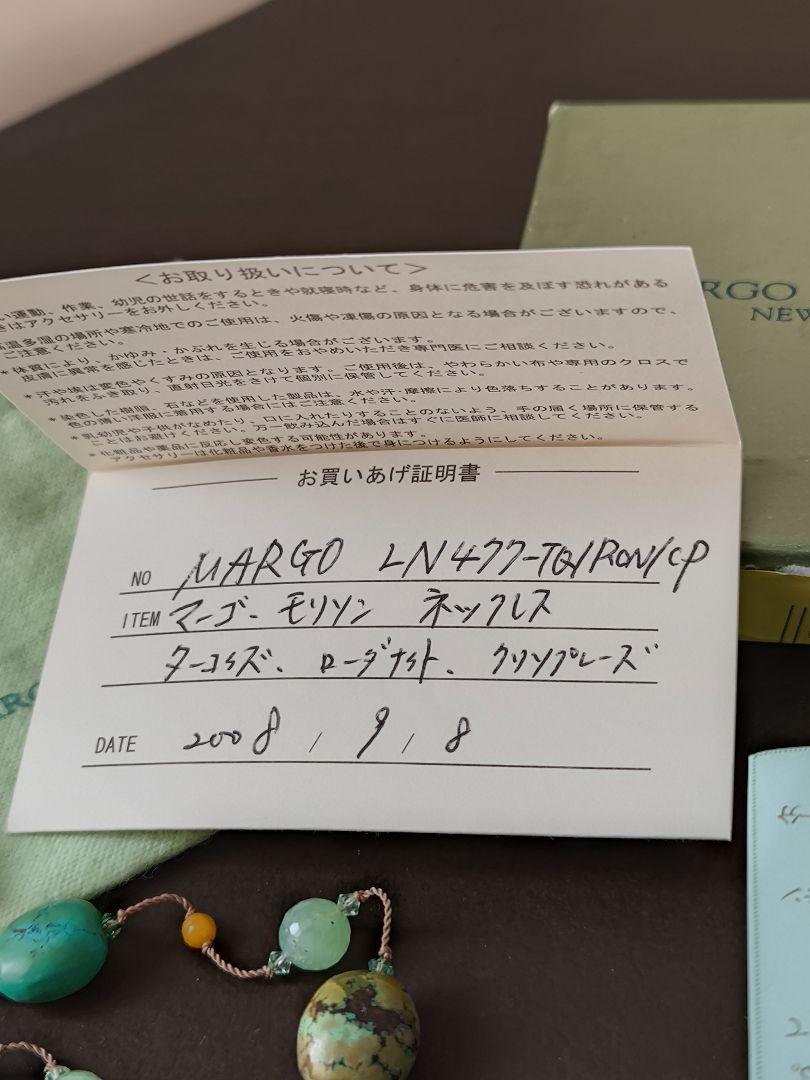 <お取り扱いについて>
い運動、作業、幼児の世話をするときや就寝時など、身体に危害を及ぼす恐れがある
きはアクセサリーをお外しください。
高温多湿の場所や寒冷地でのご使用は、火傷や凍傷の原因となる場合がございますので、
ご注意ください。
*体質により、かゆみ・かぶれを生じる場合がございます。
皮膚に異常を感じたときは、ご使用をおやめいただき専門医にご相談ください。
*汗や埃は変色やくすみの原因となります。ご使用後は、やわらかい布や専用のクロスで
汚れをふき取り、直射日光をさけて個別に保管してください。
*染色した樹脂、石などを使用した製品は、水や汗・摩擦により色落ちすることがあります。
色の薄い洋服に着用する場合にはご注意ください。
*乳幼児や子供がなめたり、口に入れたりすることのないよう、手の届く場所に保管する
ことはお避けください。万一飲み込んだ場合はすぐに医師に相談してください。
*化粧品や薬品に反応し変色する可能性があります。
アクセサリーは化粧品や香水をつけた後で身につけるようにしてください。
お買いあげ証明書
NO MARGO LN477-TQ/RON/CP
ITEM マーゴ・モリソン ネックレス
ターコイズ、ローダナイト、クリソプレーズ
DATE 2008, 9, 8
RGO
NEW